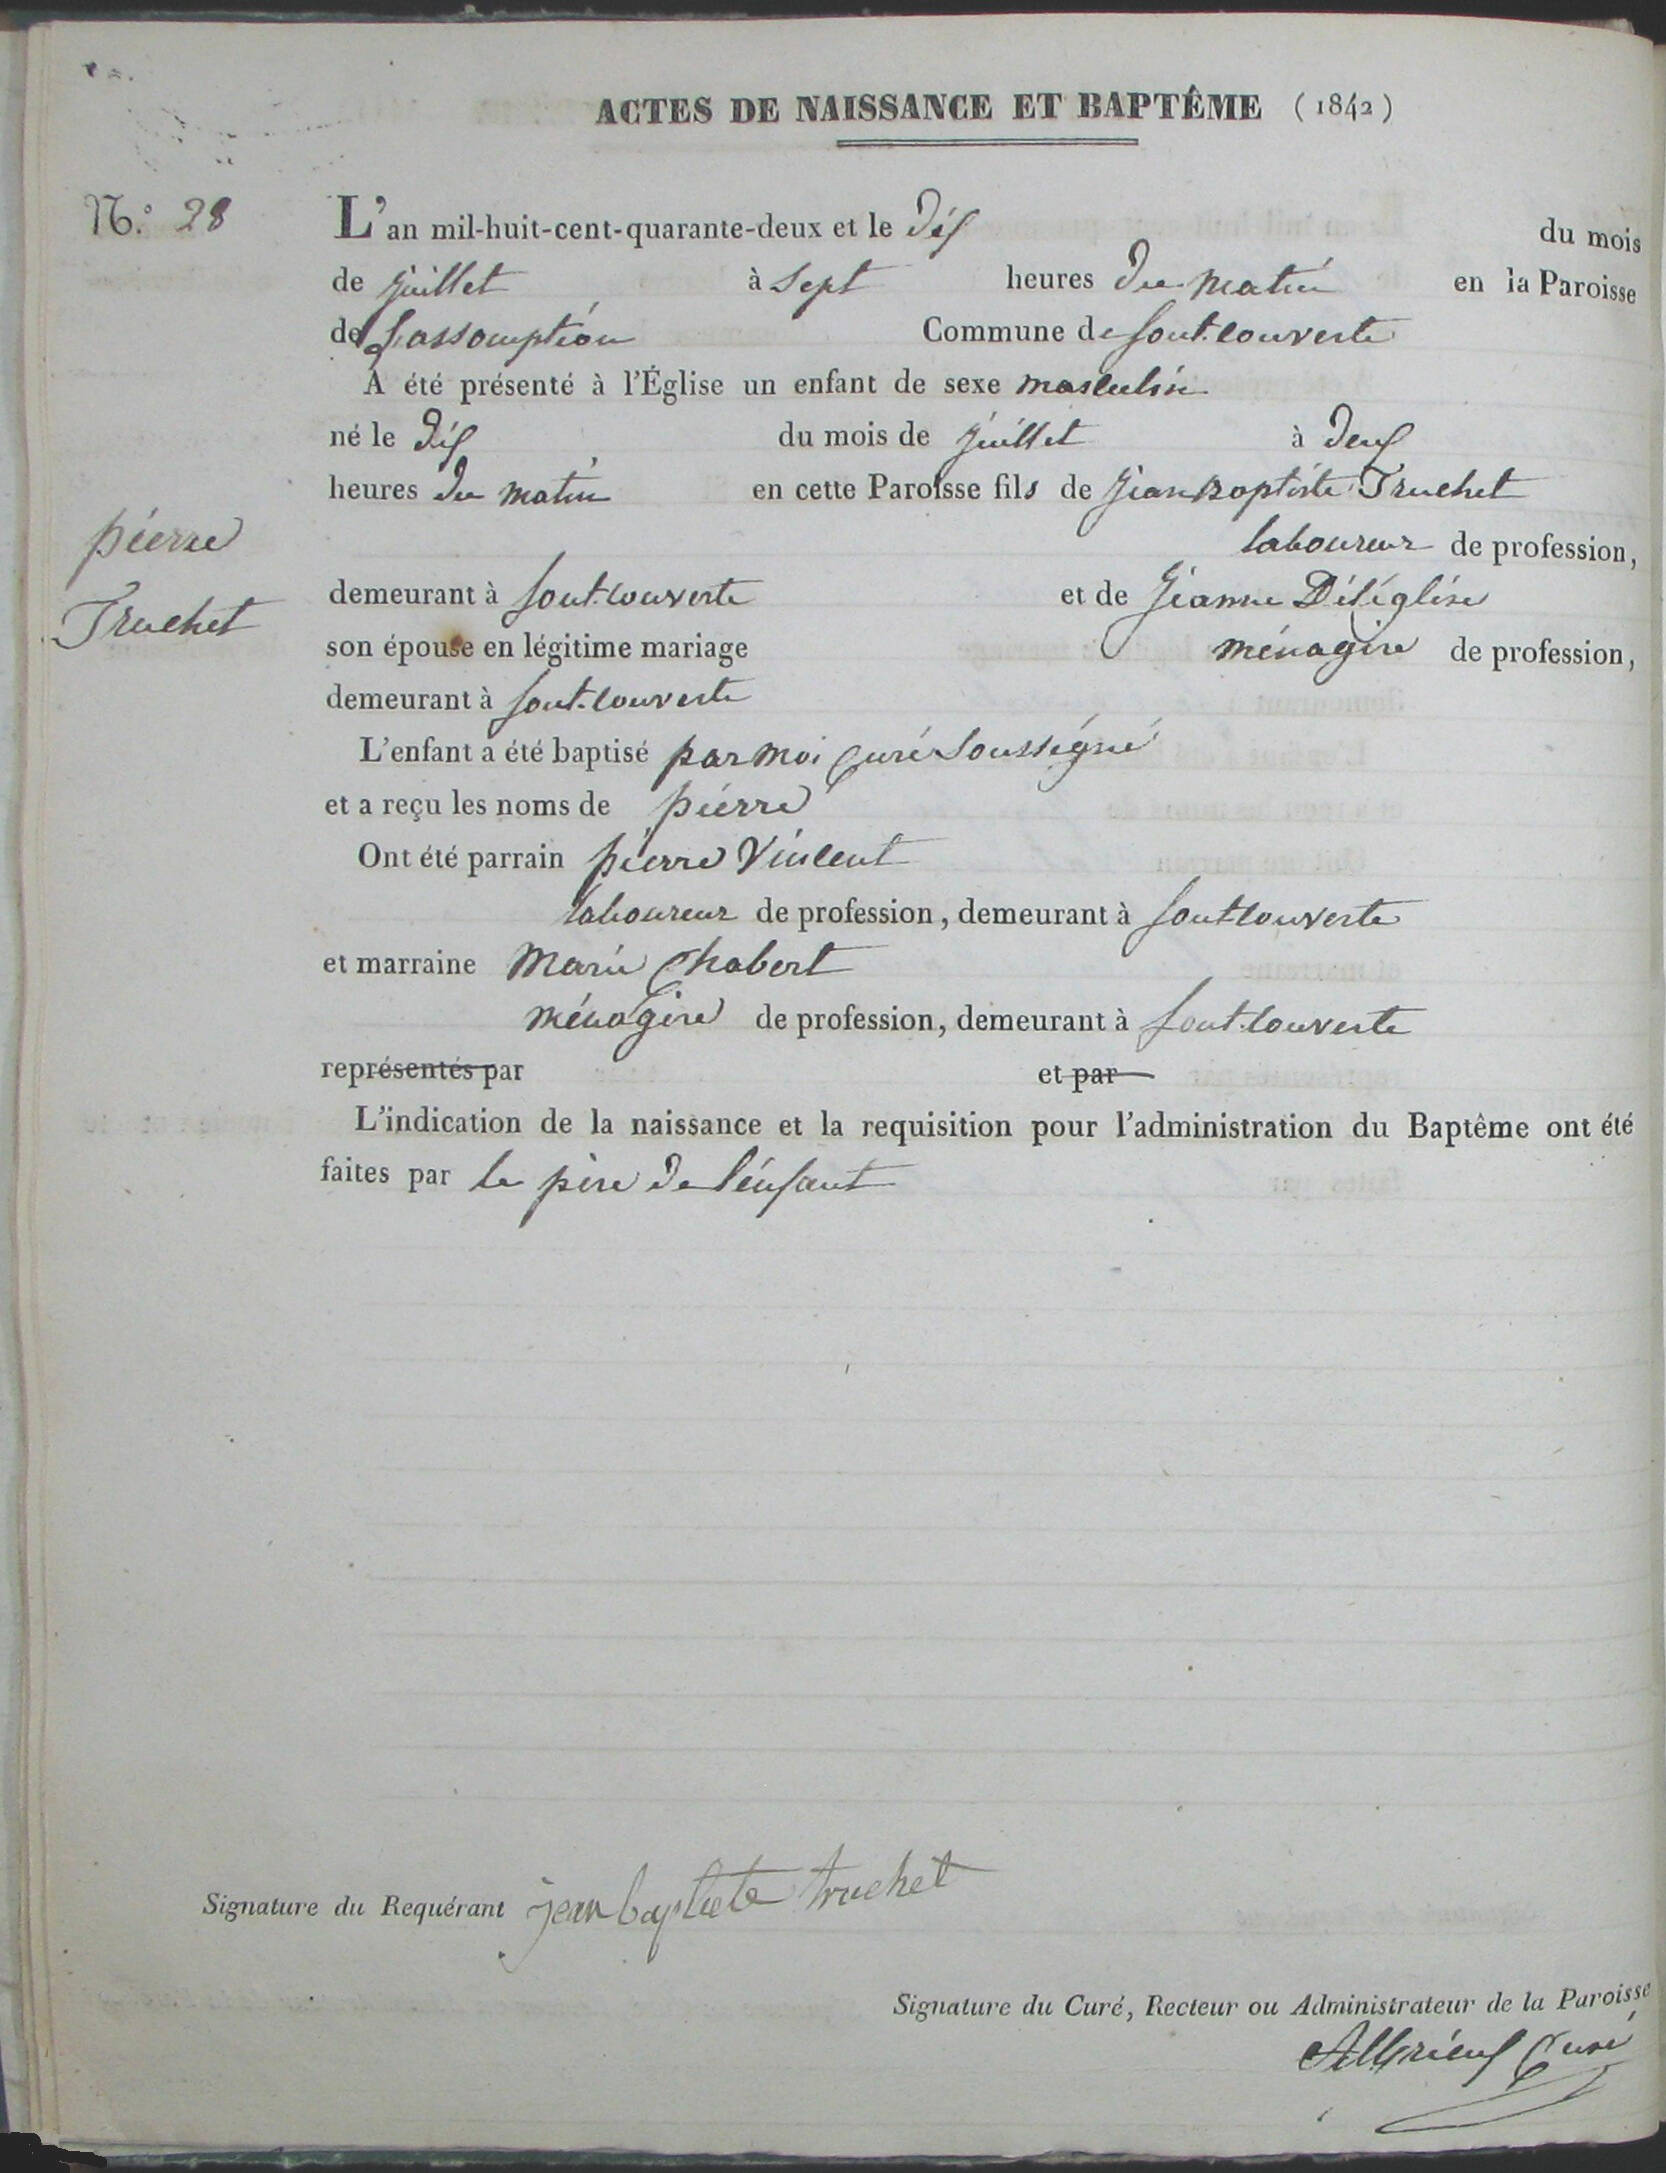 ACTES DE NAISSANCE ET BAPTÊME (1842)
N.° 28
L'an mil-huit-cent-quarante-deux et le Dix du mois
de juillet à Sept heures du matin en la Paroisse
de L'assomption Commune de fontcouverte
A été présenté à l'Église un enfant de sexe masculin
né le Dix du mois de juillet à Deux
heures du matin en cette Paroisse fils de Jean Baptiste Truchet
laboureur de profession,
pierre
Truchet
demeurant à fontcouverte et de Jeanne Déléglise
son épouse en légitime mariage ménagère de profession,
demeurant à font-couverte
L'enfant a été baptisé par moi Curé Soussigné
et a reçu les noms de pierre
Ont été parrain pierre Vincent
laboureur de profession, demeurant à fontcouverte
et marraine Marie Chabert
ménagère de profession, demeurant à font-couverte
représentés par et par
L'indication de la naissance et la requisition pour l'administration du Baptême ont été
faites par le père de l'enfant
Signature du Requérant jean baptiste truchet
Signature du Curé, Recteur ou Administrateur de la Paroisse
Curé